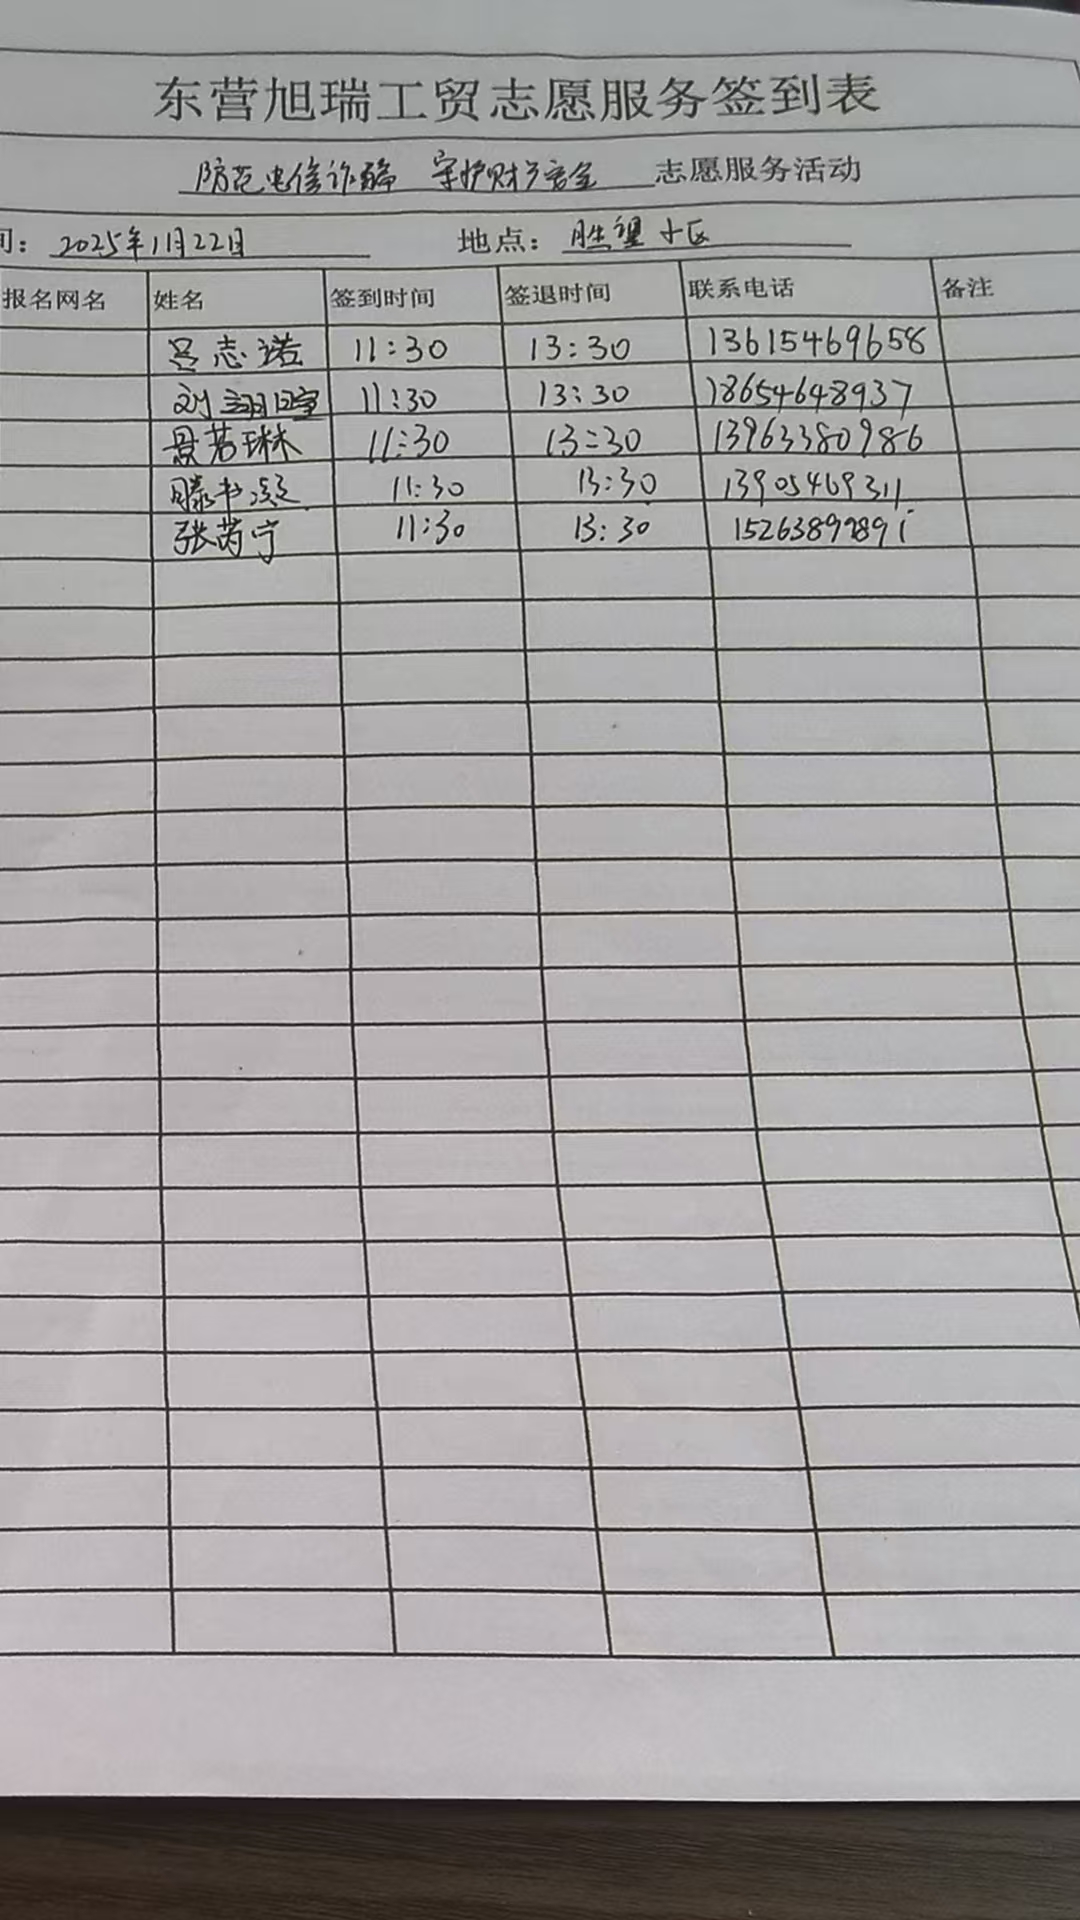 东营旭瑞工贸志愿服务签到表
防范电信诈骗 守护财产安全 志愿服务活动
间: 2025年11月22日 地点: 胜望小区
报名网名 姓名 签到时间 签退时间 联系电话 备注
吕志诺 11:30 13:30 13615469658
刘 11:30 13:30 18654648937
景若琳 11:30 13:30 13963380986
滕书凝 11:30 13:30 13905469311
张芮宁 11:30 13:30 15263899891